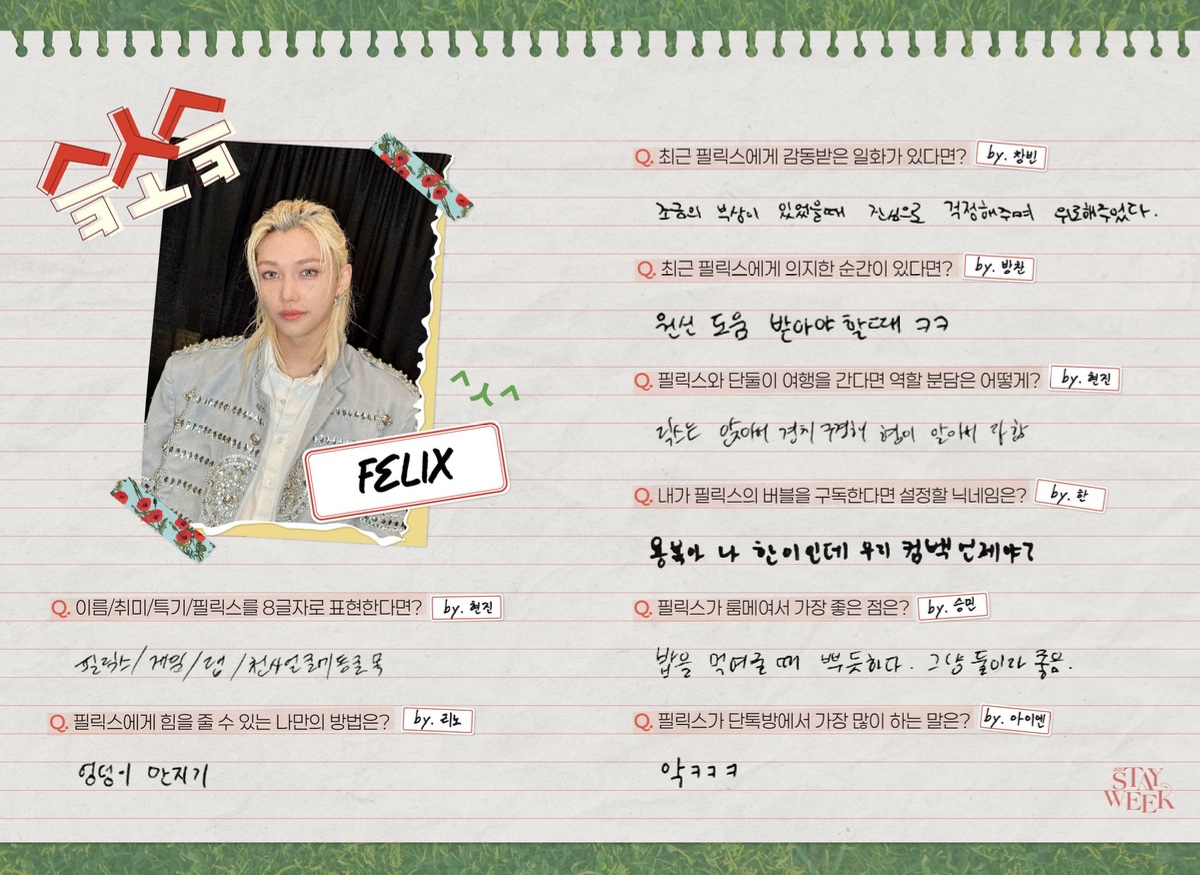 FELIX
Q. 이름/취미/특기/필릭스를 8글자로 표현한다면? by. 현진
필릭스/게임/랩/천사얼굴에동굴목
Q. 필릭스에게 힘을 줄 수 있는 나만의 방법은? by. 리노
엉덩이 만지기
Q. 최근 필릭스에게 감동받은 일화가 있다면? by. 창빈
조금의 부상이 있었을때 진심으로 걱정해주며 위로해주었다.
Q. 최근 필릭스에게 의지한 순간이 있다면? by. 방찬
원신 도움 받아야 할 때 ㅋㅋ
Q. 필릭스와 단둘이 여행을 간다면 역할 분담은 어떻게? by. 현진
릭스는 앉아서 경치 구경해 형이 알아서 다 함
Q. 내가 필릭스의 버블을 구독한다면 설정할 닉네임은? by. 한
용복아 나 한이인데 우리 컴백 언제야?
Q. 필릭스가 룸메여서 가장 좋은 점은? by. 승민
밥을 먹여줄 때 뿌듯하다. 그냥 둘이라 좋음.
Q. 필릭스가 단톡방에서 가장 많이 하는 말은? by. 아이엔
악ㅋㅋㅋ
STAY
WEEK